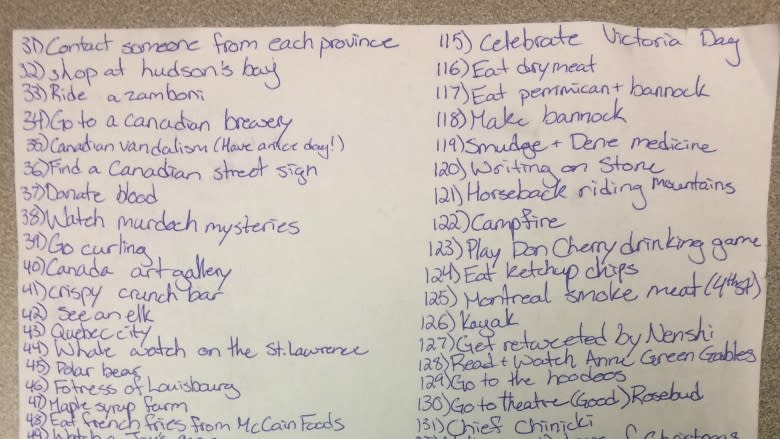 31) Contact someone from each province
32) shop at hudson's bay
33) Ride a zamboni
34) Go to a canadian brewery
35) Canadian vandalism (Have a nice day!)
36) Find a Canadian street sign
37) Donate blood
38) Watch murdoch mysteries
39) Go curling
40) Canada art gallery
41) crispy crunch bar
42) See an elk
43) Quebec city
44) Whale watch on the St. Lawrence
45) Polar bear
46) Fotress of Louisbourg
47) Maple syrup farm
48) Eat french fries from McCain Foods
49) Watch a
115) Celebrate Victoria Day
116) Eat dry meat
117) Eat pemmican + bannock
118) Make bannock
119) Smudge + Dene medicine
120) Writing on Stone
121) Horseback riding mountains
122) Campfire
123) Play Don Cherry drinking game
124) Eat ketchup chips
125) Montreal smoke meat (4th st)
126) Kayak
127) Get retweeted by Nenshi
128) Read + Watch Anne Green Gables
129) Go to the hoodoos
130) Go to theatre (Good) Rosebud
131) Chief Chinicki
of Christmas